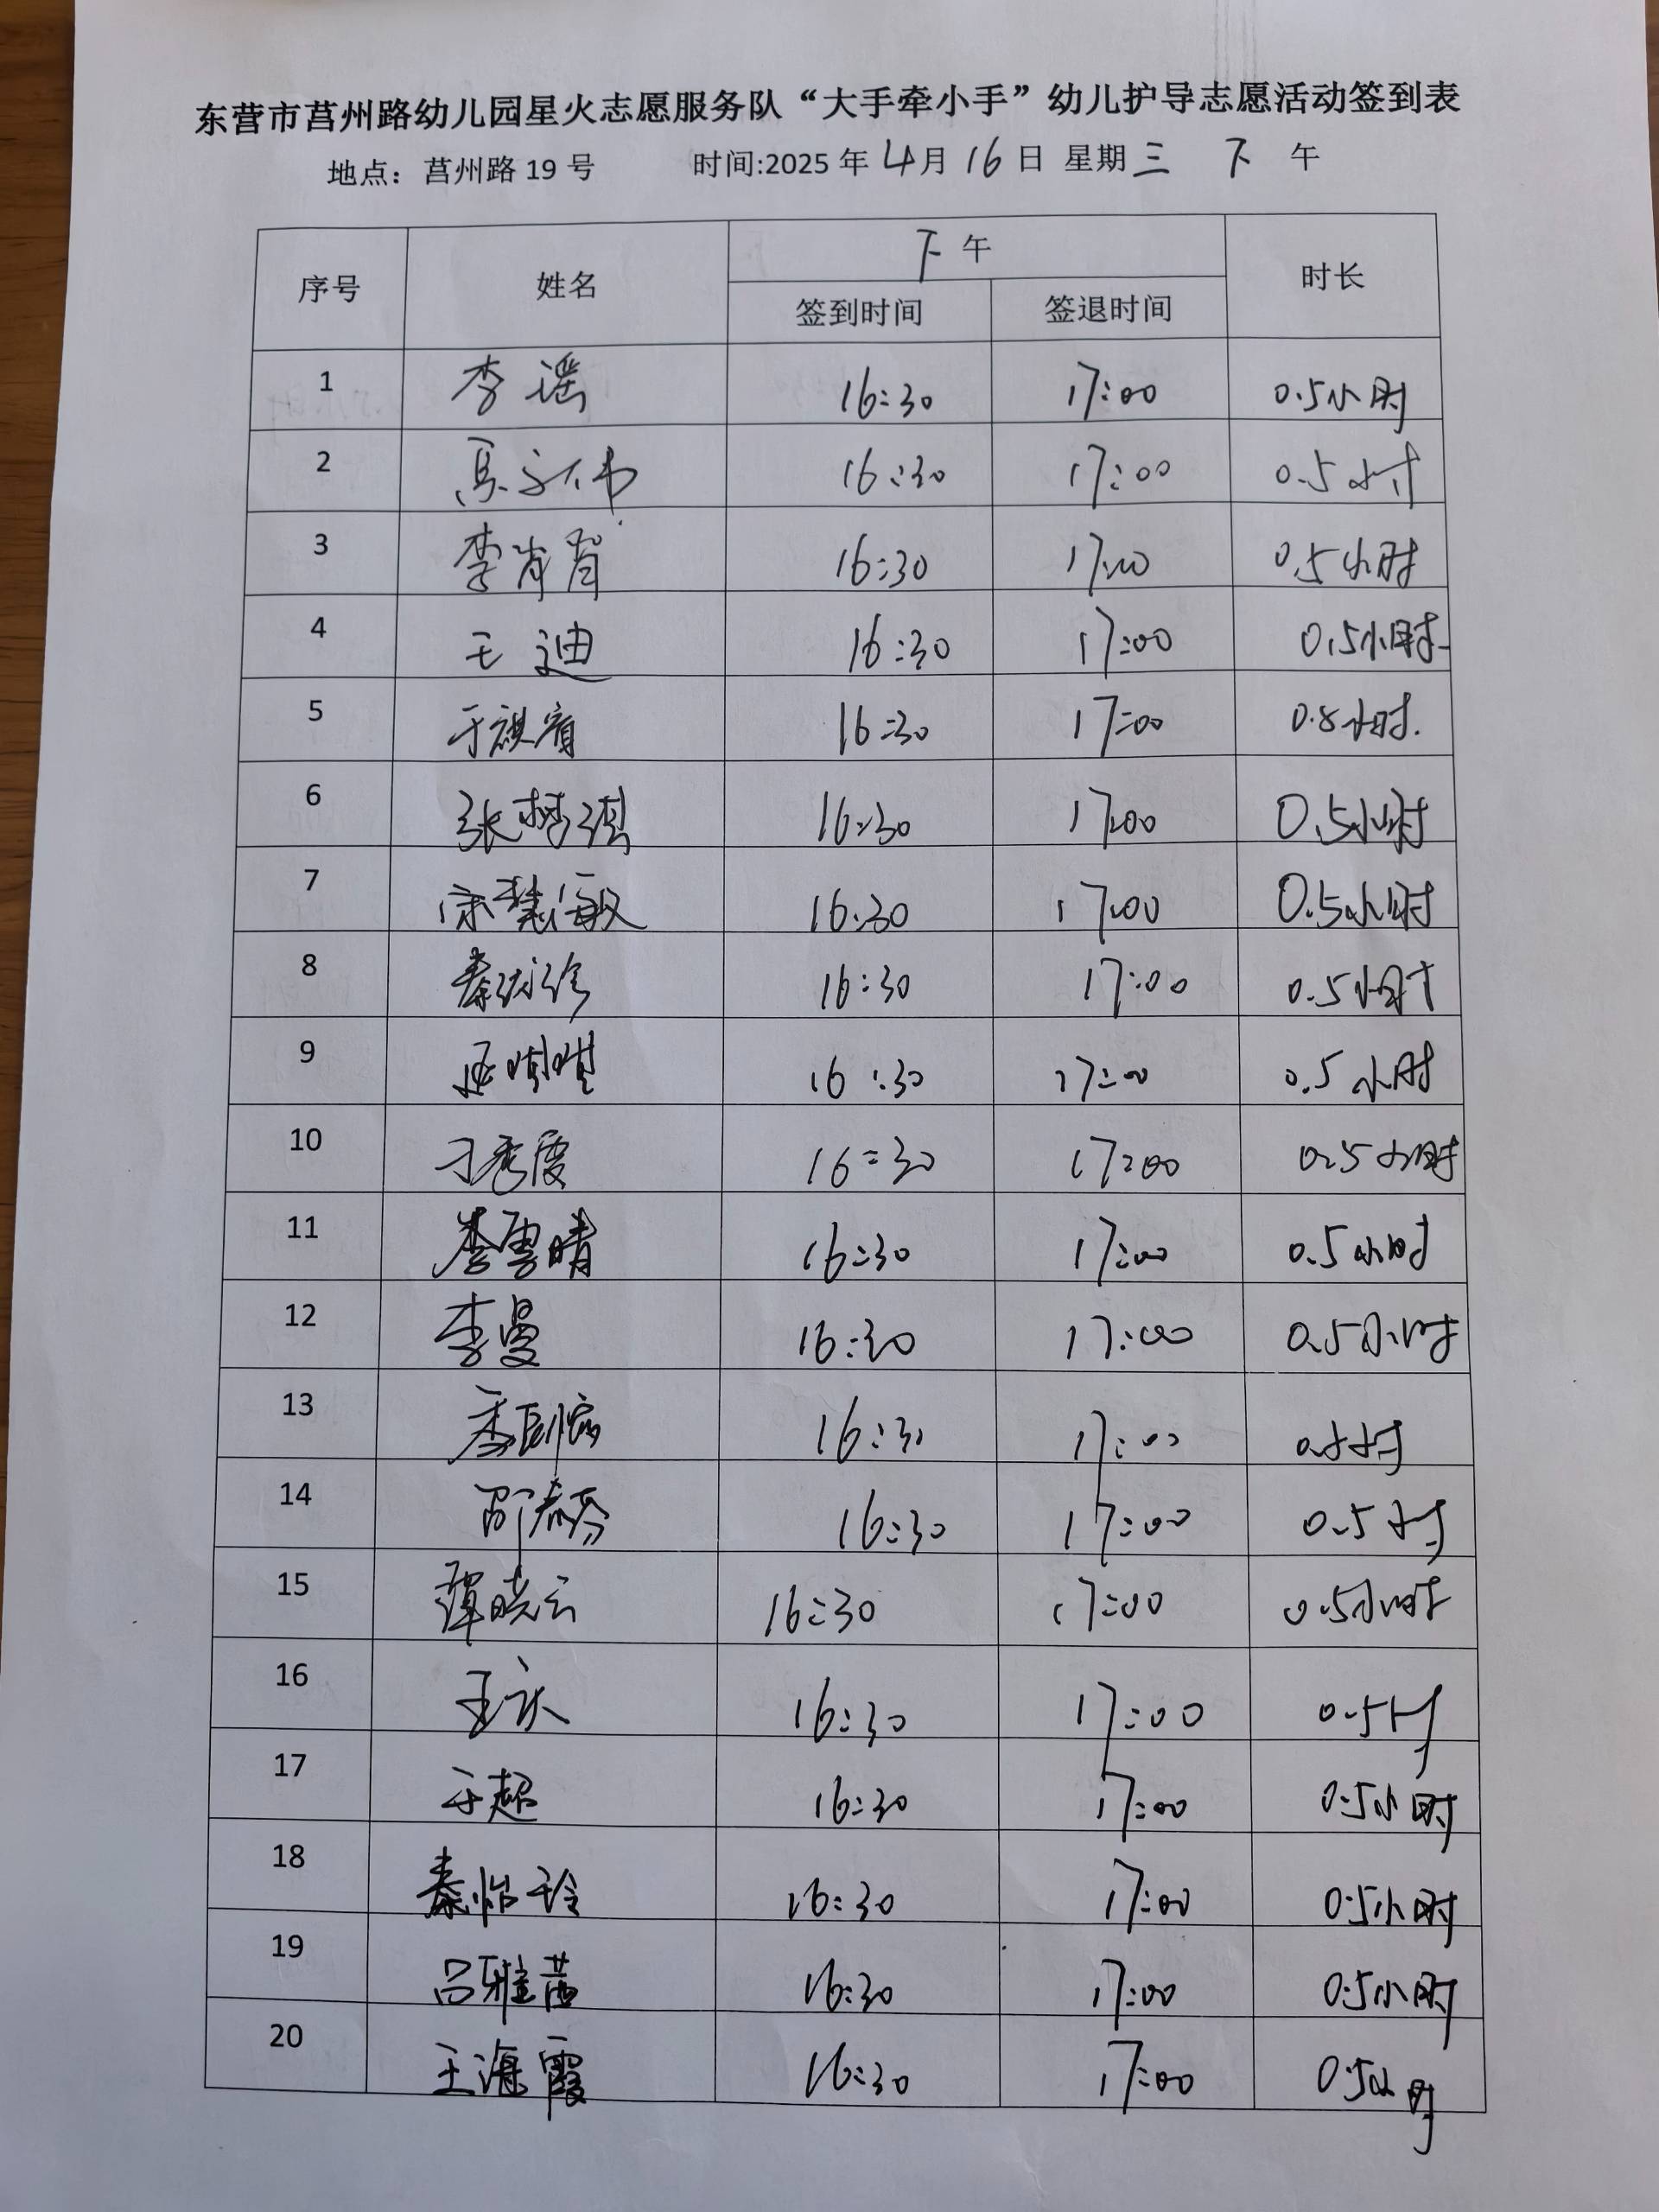 东营市莒州路幼儿园星火志愿服务队“大手牵小手”幼儿护导志愿活动签到表
地点：莒州路 19 号 时间:2025 年 4 月 16 日 星期 三 下 午
序号 姓名 下 午 时长
签到时间 签退时间
1 李谣 16:30 17:00 0.5小时
2 16:30 17:00 0.5小时
3 李肖肖 16:30 17:00 0.5小时
4 王迪 16:30 17:00 0.5小时
5 于祺宥 16:30 17:00 0.5小时.
6 张梦琪 16:30 17:00 0.5小时
7 宋慧敏 16:30 17:00 0.5小时
8 秦 16:30 17:00 0.5小时
9 16:30 17:00 0.5小时
10 刁秀霞 16:30 17:00 0.5小时
11 李雪晴 16:30 17:00 0.5小时
12 李曼 16:30 17:00 0.5小时
13 16:30 17:00 0.5小时
14 邵春芬 16:30 17:00 0.5小时
15 谭晓云 16:30 17:00 0.5小时
16 王 16:30 17:00 0.5时
17 于超 16:30 17:00 0.5小时
18 秦怡玲 16:30 17:00 0.5小时
19 吕雅茜 16:30 17:00 0.5小时
20 王海霞 16:30 17:00 0.5小时